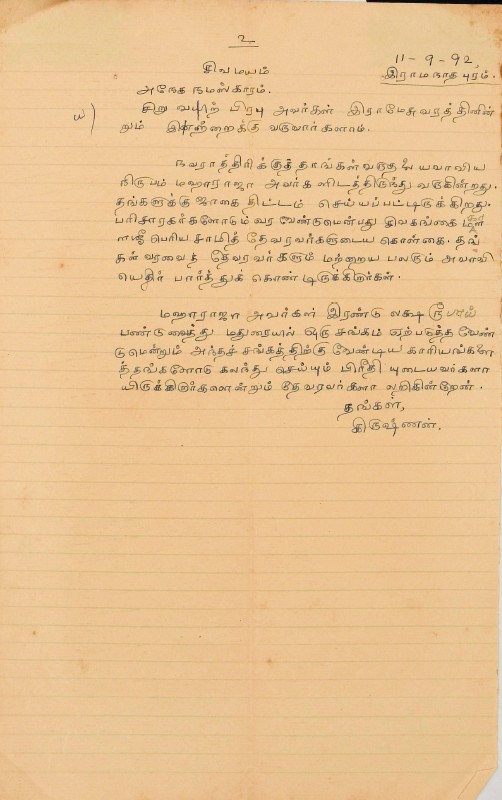 2
11-9-92,
இராமநாதபுரம்.
சிவமயம்
அநேத நமஸ்காரம்.
சிறு வயிற் பிரபு அவர்கள் இராமேசுவரத்தினின்
றும் இன்றைக்கு வருவார்களாம்.
நவராத்திரிக்குத் தாங்கள் வருதற்
நிருபம் மஹாராஜா அவர்களிடத்திருந்து வருகின்றது.
தங்களுக்கு ஜாகை திட்டம் செய்யப்பட்டிருக்கிறது.
பரிசாரகர்களோடும் வர வேண்டுமென்பது
பெரிய சாமித் தேவரவர்களுடைய கொள்கை. தங்
கள் வரவைத் தேவரவர்களும் மற்றைய பலரும் அவாவி
யெதிர் பார்த்துக் கொண்டிருக்கிறார்கள்.
மஹாராஜா அவர்கள் இரண்டு லக்ஷ ரூபாய்
பண்டுவைத்து மதுரையில் ஒரு சங்கம் ஏற்படுத்த வேண்
டுமென்றும் அந்தச் சங்கத்திற்கு வேண்டிய காரியங்களை
த்தங்களோடு கலந்து செய்யும் பிரீதி யுடையவர்களா
யிருக்கிறார்களென்றும் தேவரவர்களா லறிகின்றேன்.
தங்கள்,
கிருஷ்ணன்.